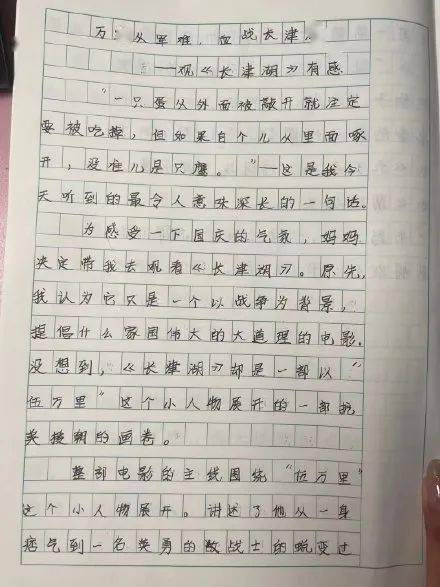 万：从军难，血战长津。
——观《长津湖》有感
“一只蛋从外面被敲开就注定
要被吃掉，但如果自个儿从里面啄
开，没准儿是只鹰。”—这是我今
天听到的最令人意味深长的一句话。
为感受一下国庆的气氛，妈妈
决定带我去观看《长津湖》。原先，
我认为它只是一个以战争为背景，
提倡什么家国伟大的大道理的电影。
没想到，《长津湖》却是一部以“
伍万里”这个小人物展开的一部抗
美援朝的画卷。
整部电影的主线围绕“伍万里”
这个小人物展开。讲述了他从一身
痞气到一名英勇的战士的蜕变过